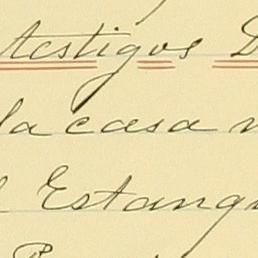 testigos D
la casa n
l Estanqu